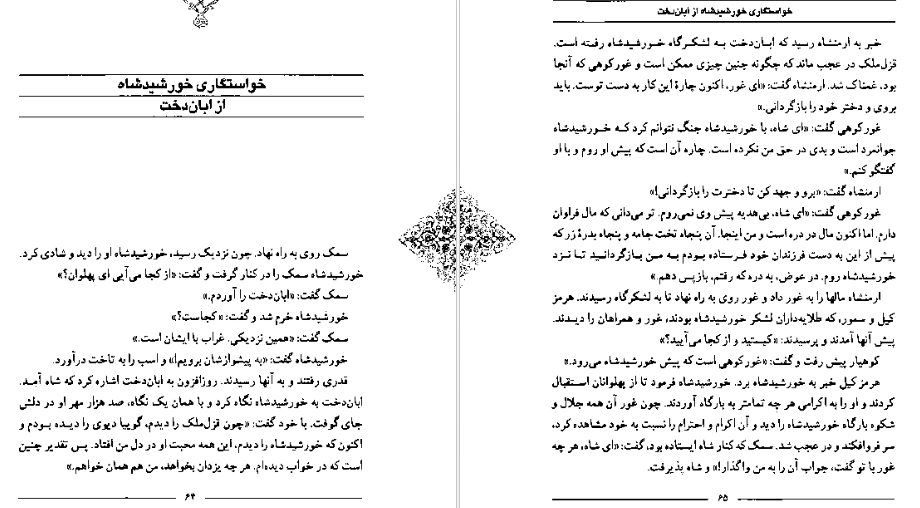 خواستگاری خورشیدشاه
از آبان‌دخت
سمک روی به راه نهاد. چون نزدیک رسید، خورشیدشاه او را دید و شادی کرد.
خورشیدشاه سمک را در کنار گرفت و گفت: «از کجا می‌آیی ای پهلوان؟»
سمک گفت: «ابان‌دخت را آوردم.»
خورشیدشاه خرم شد و گفت: «کجاست؟»
سمک گفت: «همین نزدیکی. غراب با ایشان است.»
خورشیدشاه گفت: «به پیشوازشان برویم!» و اسب را به تاخت درآورد.
قدری رفتند و به آنها رسیدند. روزافزون به ابان‌دخت اشاره کرد که شاه آمد.
ابان‌دخت به خورشیدشاه نگاه کرد و با همان یک نگاه، صد هزار مهر او در دلش
جای گرفت. با خود گفت: «چون قزل‌ملک را دیدم، گوییا دیوی را دیده بودم و
اکنون که خورشیدشاه را دیدم، این همه محبت او در دل من افتاد. پس تقدیر چنین
است که در خواب دیده‌ام. هر چه یزدان بخواهد، من هم همان خواهم.»
۶۴
خواستگاری خورشیدشاه از آبان‌دخت
خبر به ارمنشاه رسید که ابان‌دخت به لشکرگاه خورشیدشاه رفته است.
قزل‌ملک در عجب ماند که چگونه چنین چیزی ممکن است و غورکوهی که آنجا
بود، غمناک شد. ارمنشاه گفت: «ای غور، اکنون چارهٔ این کار به دست توست. باید
بروی و دختر خود را بازگردانی.»
غورکوهی گفت: «ای شاه، با خورشیدشاه جنگ نتوانم کرد که خورشیدشاه
جوانمرد است و بدی در حق من نکرده است. چاره آن است که پیش او روم و با او
گفتگو کنم.»
ارمنشاه گفت: «برو و جهد کن تا دخترت را بازگردانی!»
غورکوهی گفت: «ای شاه، بی‌هدیه پیش وی نمی‌روم. تو می‌دانی که مال فراوان
دارم. اما اکنون مال در دره است و من اینجا. آن پنجاه تخت جامه و پنجاه بدرهٔ زر که
پیش از این به دست فرزندان خود فرستاده بودم به من بازگردانید تا نزد
خورشیدشاه روم. در عوض، به دره که رفتم، بازپس دهم.»
ارمنشاه مالها را به غور داد و غور روی به راه نهاد تا به لشکرگاه رسیدند. هرمز
کیل و سمور، که طلایه‌داران لشکر خورشیدشاه بودند، غور و همراهان را دیدند.
پیش آنها آمدند و پرسیدند: «کیستید و از کجا می‌آیید؟»
کوهیار پیش رفت و گفت: «غورکوهی است که پیش خورشیدشاه می‌رود.»
هرمز کیل خبر به خورشیدشاه برد. خورشیدشاه فرمود تا از پهلوانان استقبال
کردند و او را به اکرامی هر چه تمامتر به بارگاه آوردند. چون غور آن همه جلال و
شکوه بارگاه خورشیدشاه را دید و آن اکرام و احترام را نسبت به خود مشاهده کرد،
سر فروافکند و در عجب شد. سمک که کنار شاه ایستاده بود، گفت: «ای شاه، هر چه
غور با تو گفت، جواب آن را به من واگذار!» و شاه پذیرفت.
۶۵